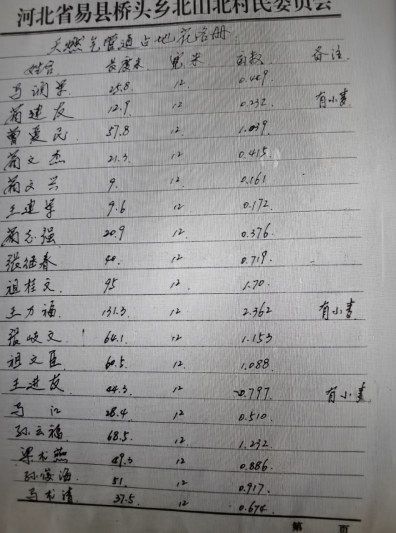 河北省易县桥头乡北山北村民委员会
天燃气管道占地花名册
姓名 长度米 宽米 亩数 备注
马润军 25.8 12 0.449
12.9 12 0.232 有小麦
曹爱民 57.8 12 1.039
文杰 21.3 12 0.415
文兴 9. 12 0.161
王建军 9.6 12 0.172
志强 20.9 12 0.376
张继春 40 12 0.719
祖桂文 95 12 1.70
王力福 131.3 12 2.362 有小麦
张岐文 64.1 12 1.153
祖文臣 60.5 12 1.088
王进友 44.3 12 0.797 有小麦
马江 28.4 12 0.510
孙云福 68.5 12 1.232
梁 49.3 12 0.886
孙 海 51 12 0.917
马 清 37.5 12 0.674
第 页